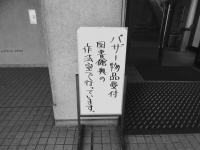 バザー物品受付
図書館奥の
作法室で行っています。